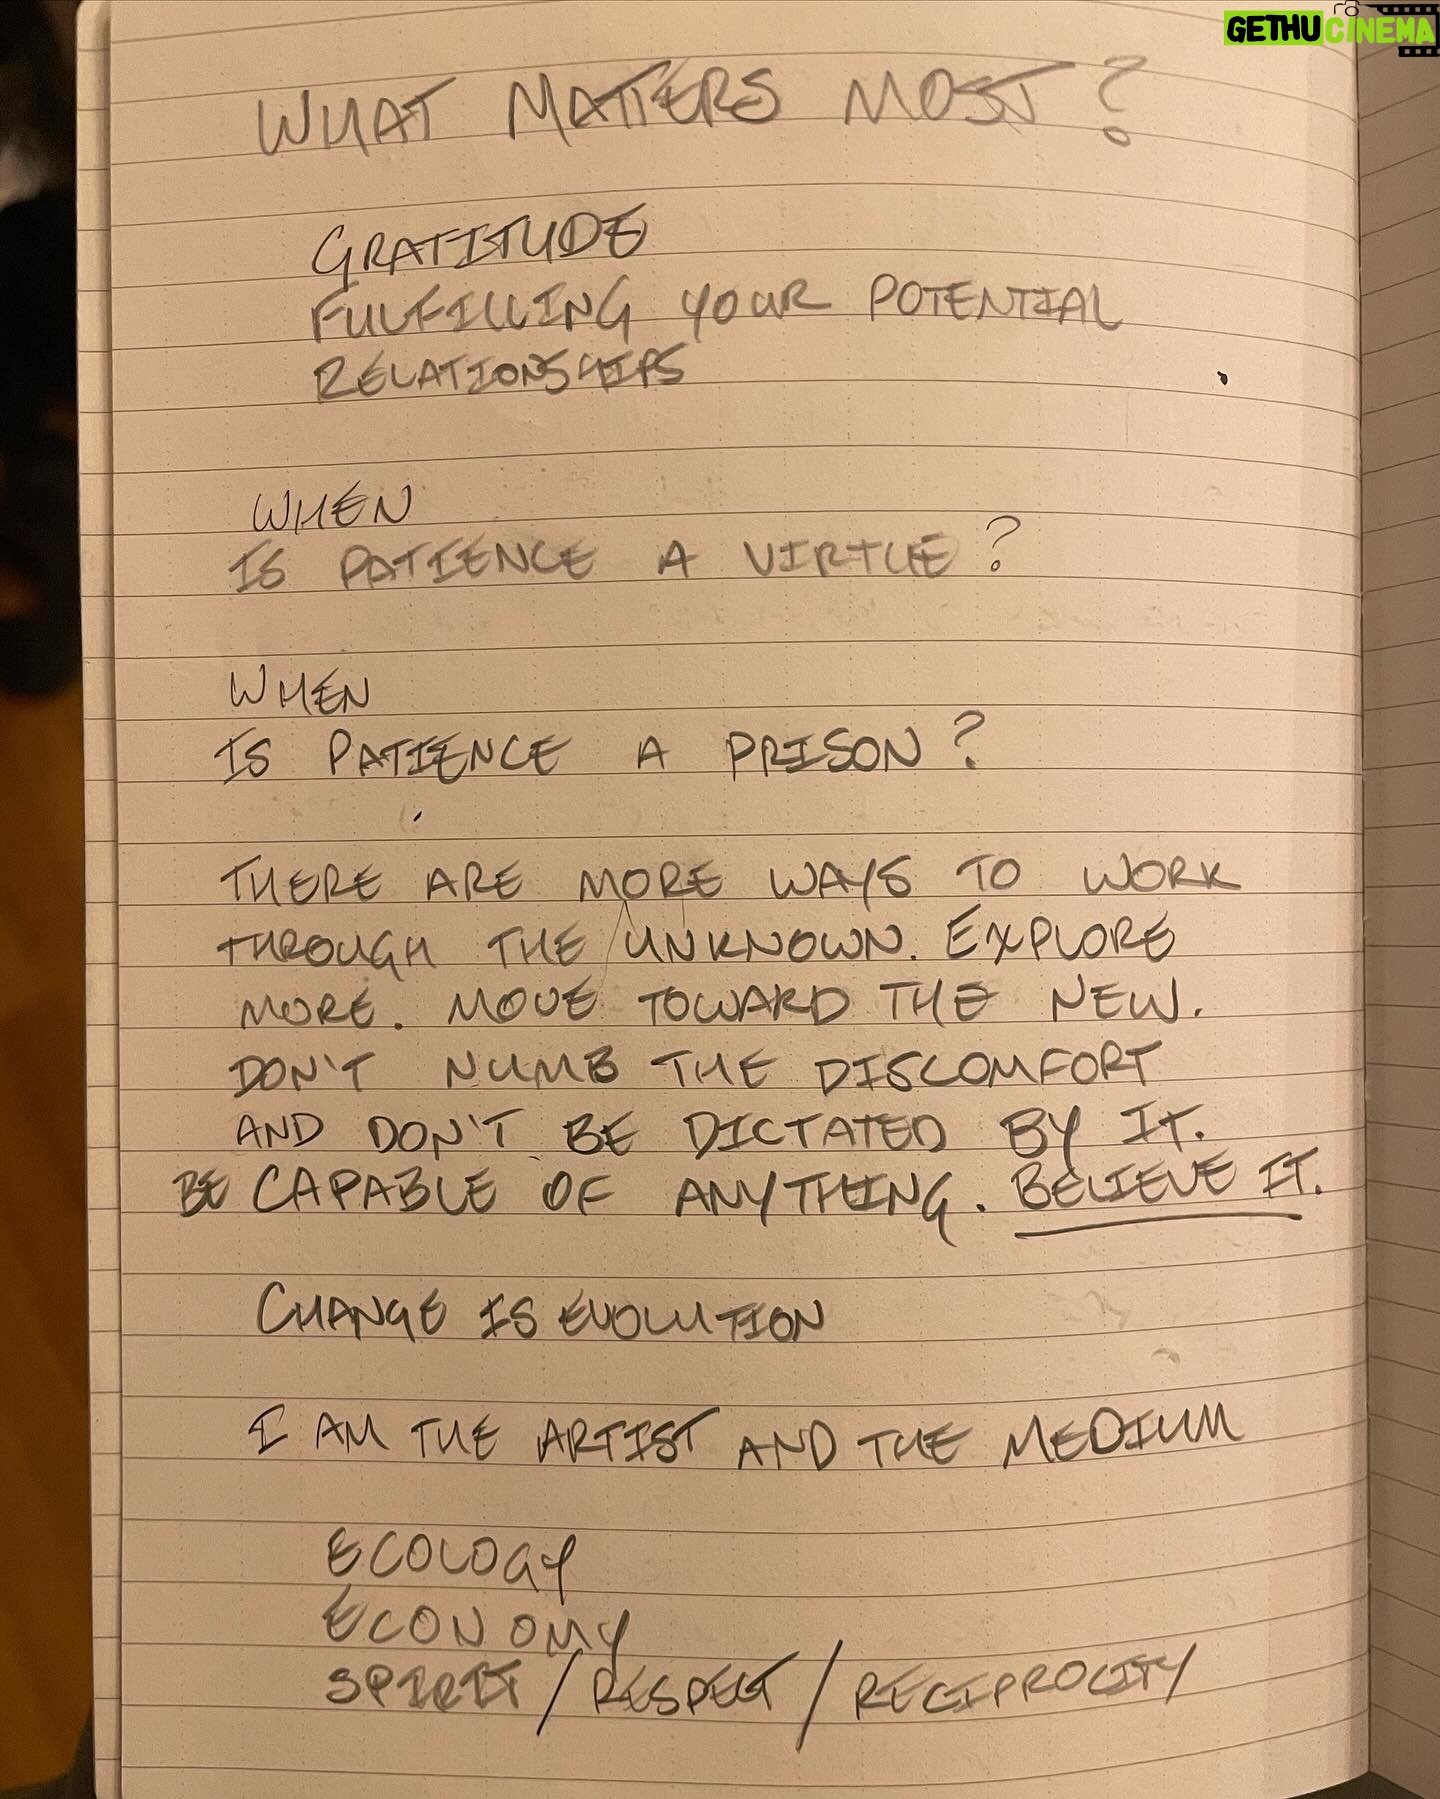 GETHUCINEMA
WHAT MATTERS MOST?
GRATITUDE
FULFILLING YOUR POTENTIAL
RELATIONSHIPS
WHEN
IS PATIENCE A VIRTUE?
WHEN
IS PATIENCE A PRISON?
THERE ARE MORE WAYS TO WORK
THROUGH THE UNKNOWN. EXPLORE
MORE. MOVE TOWARD THE NEW.
DON'T NUMB THE DISCOMFORT
AND DON'T BE DICTATED BY IT.
BE CAPABLE OF ANYTHING. BELIEVE IT.
CHANGE IS EVOLUTION
I AM THE ARTIST AND THE MEDIUM
ECOLOGY
ECONOMY
SPIRIT / RESPECT / RECIPROCITY